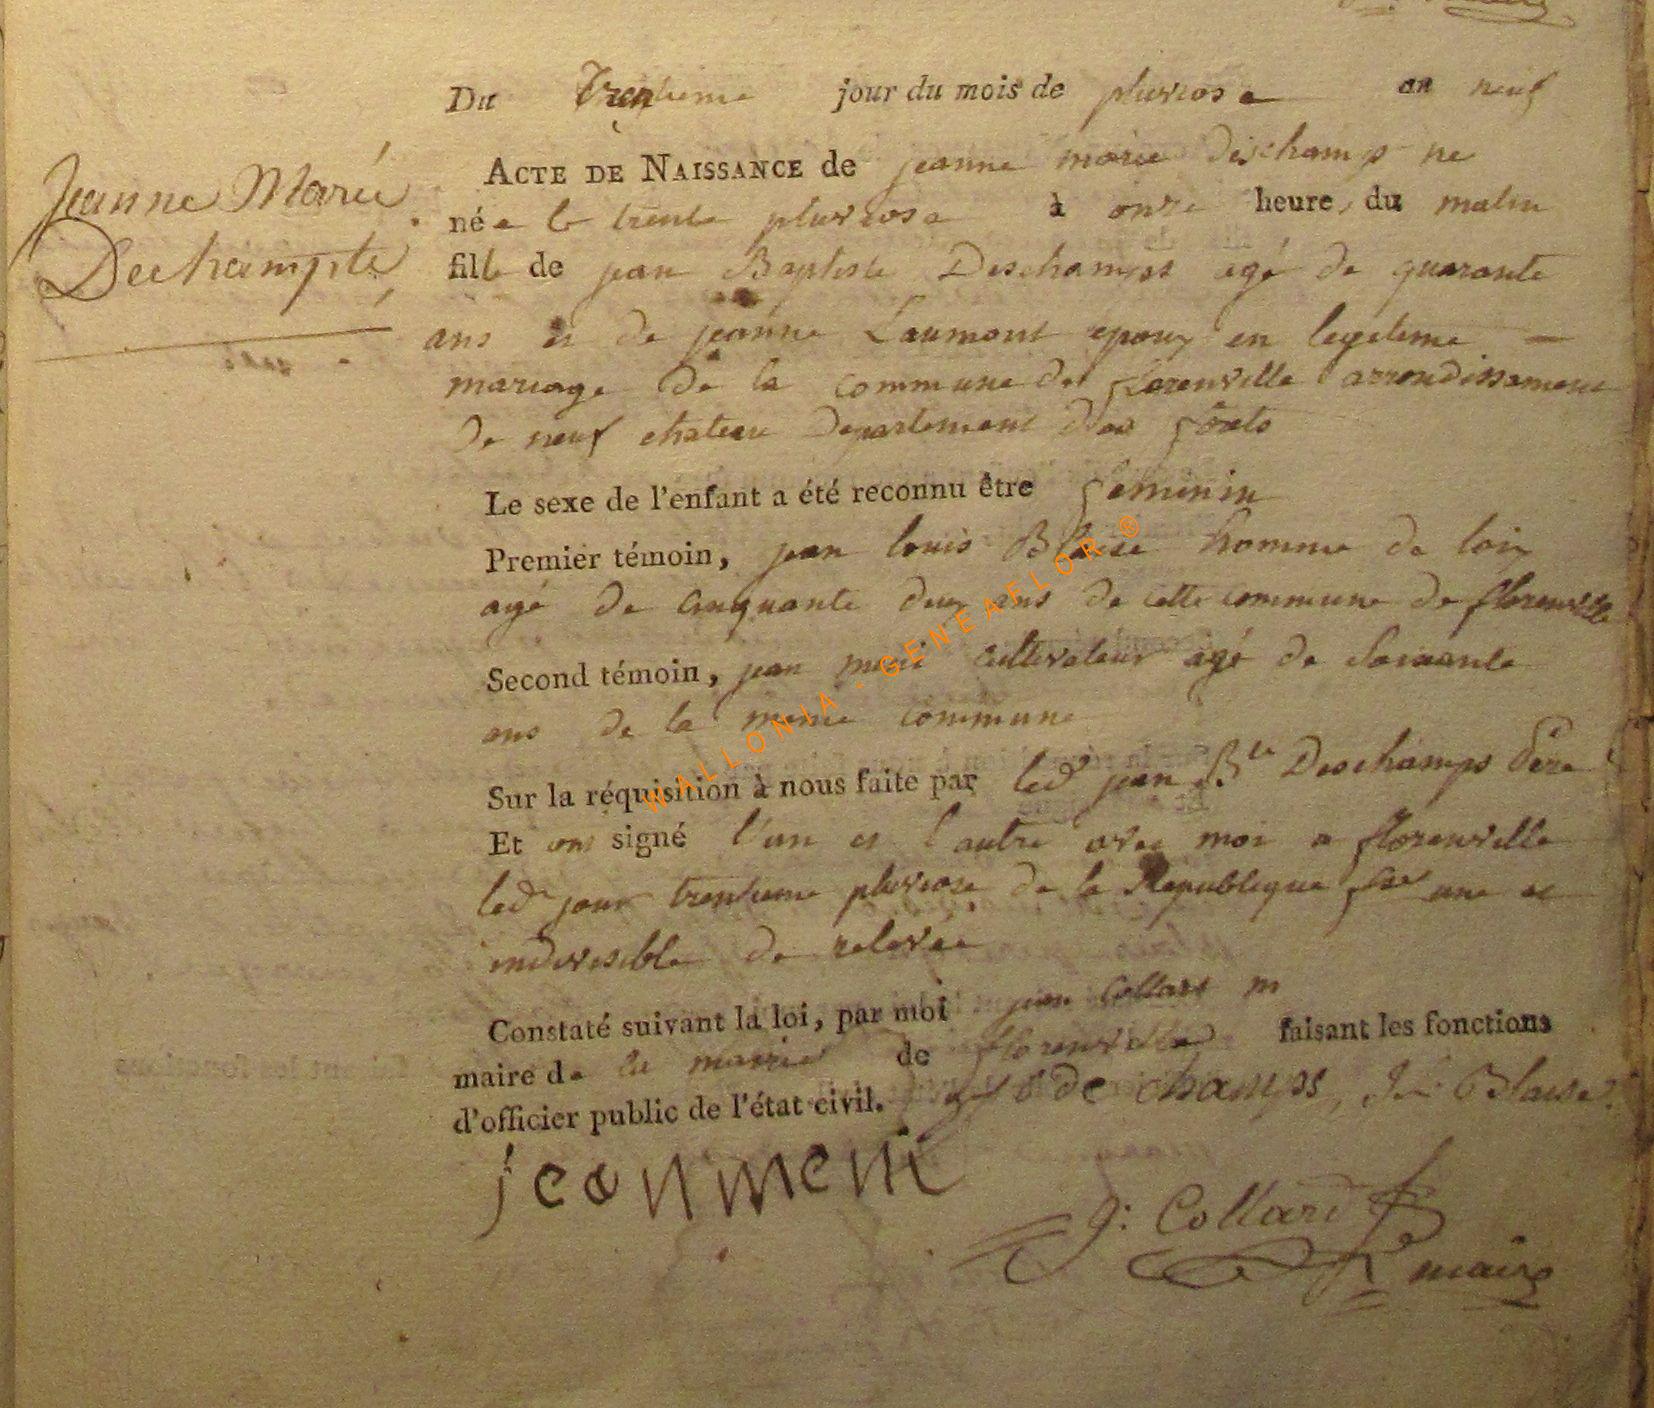 Du Trentieme jour du mois de pluviose an neuf
ACTE DE NAISSANCE de jeanne marie Deschamps ne
Jeanne Marie
Dechampte
née le trente pluviose à onze heure, du matin
fille de jean Baptiste Deschamps agé de quarante
ans et de jeanne Laumont epoux en legitime
mariage de la commune de florenville arrondissement
de neuf chateau departement des forets
Le sexe de l'enfant a été reconnu être feminin
Premier témoin, jean louis Blaise homme de loix
agé de cinquante deux ans de cette commune de florenville
Second témoin, jean meni cultivateur agé de soixante
ans de la meme commune
Sur la réquisition à nous faite par led jean Bte Deschamps Pere
Et ont signé l'un et l'autre avec moi a florenville
led jour trentieme pluviose de la Republique une et
indivisible de relevée
Constaté suivant la loi, par moi jean Collard m
maire de la mairie de florenville faisant les fonctions
d'officier public de l'état civil. de champs, Blaise
jean meni
g: Collard
maire
WALLONIA - GENEAFLOR ®